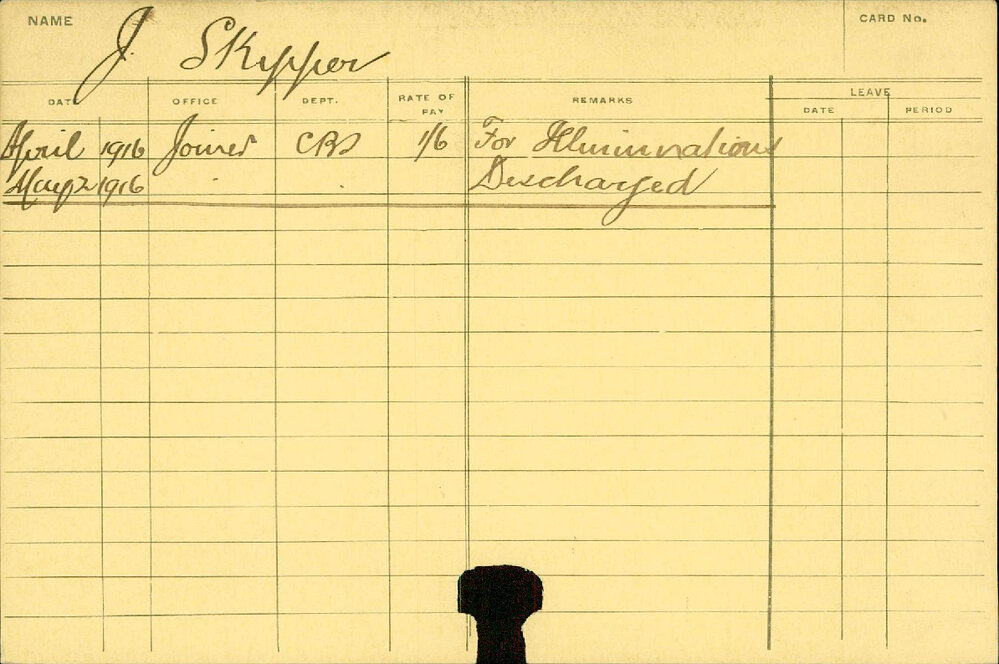 NAME J. Skipper CARD No.
DATE OFFICE DEPT. RATE OF PAY REMARKS LEAVE
DATE PERIOD
April 1916 Joiner CBS 1/6 For Illuminations
May 2 1916 . . Discharged